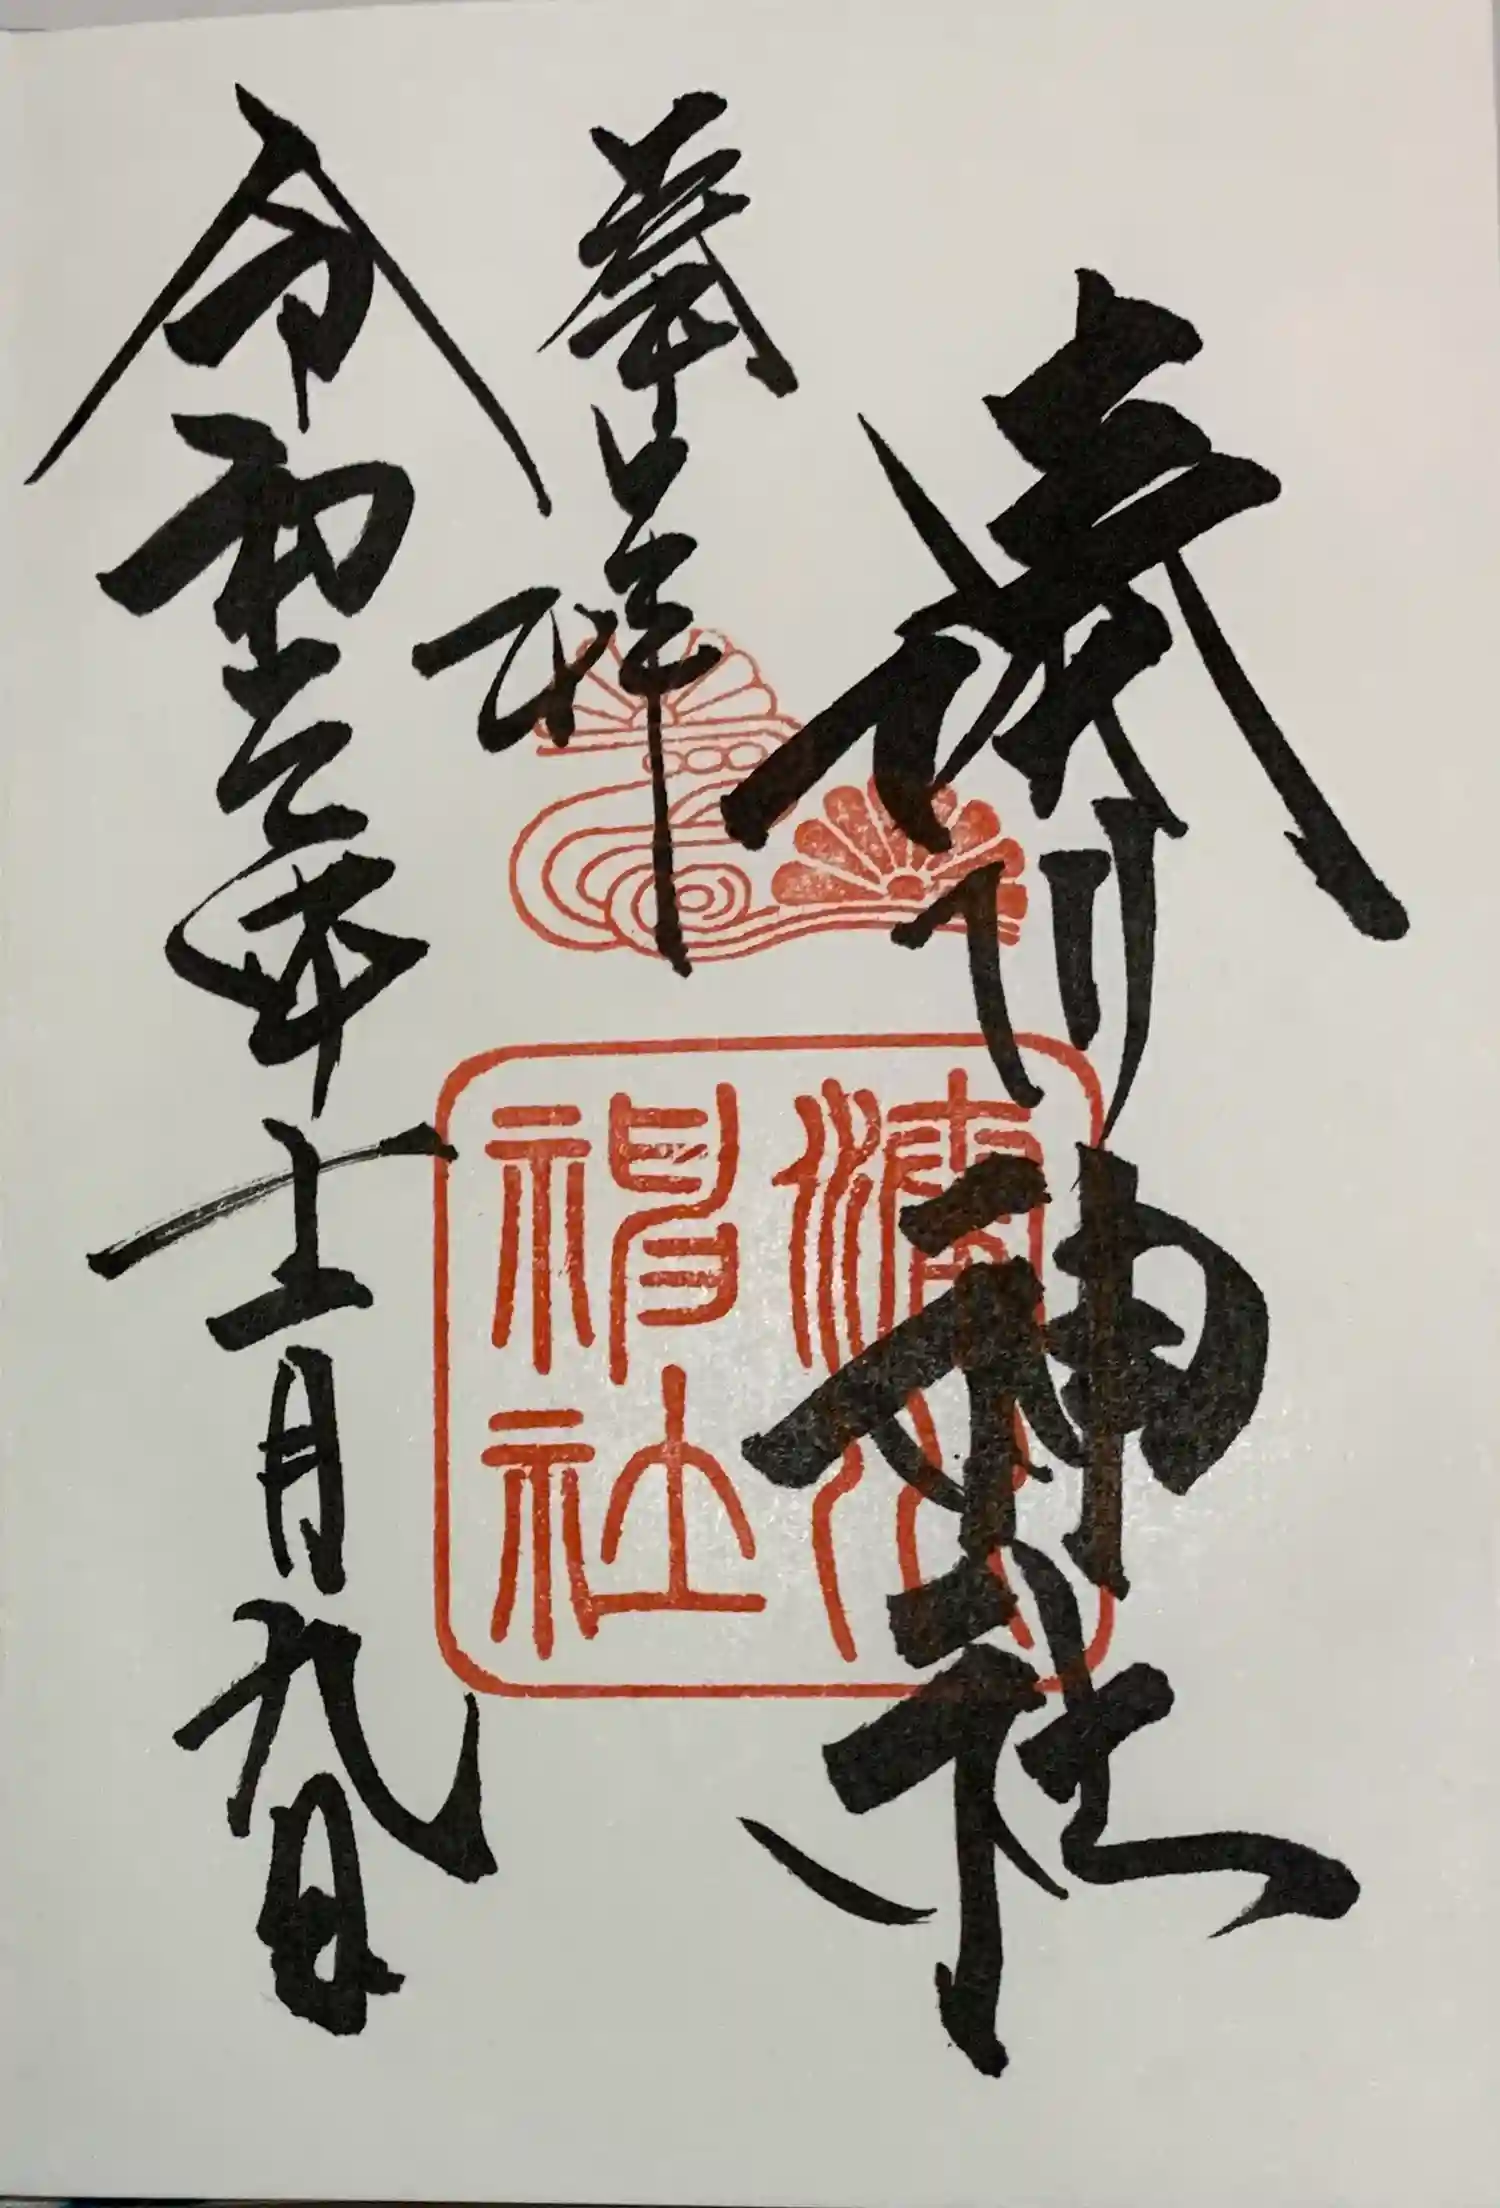 湊川神社
奉拝
令和元年十一月九日
湊川神社